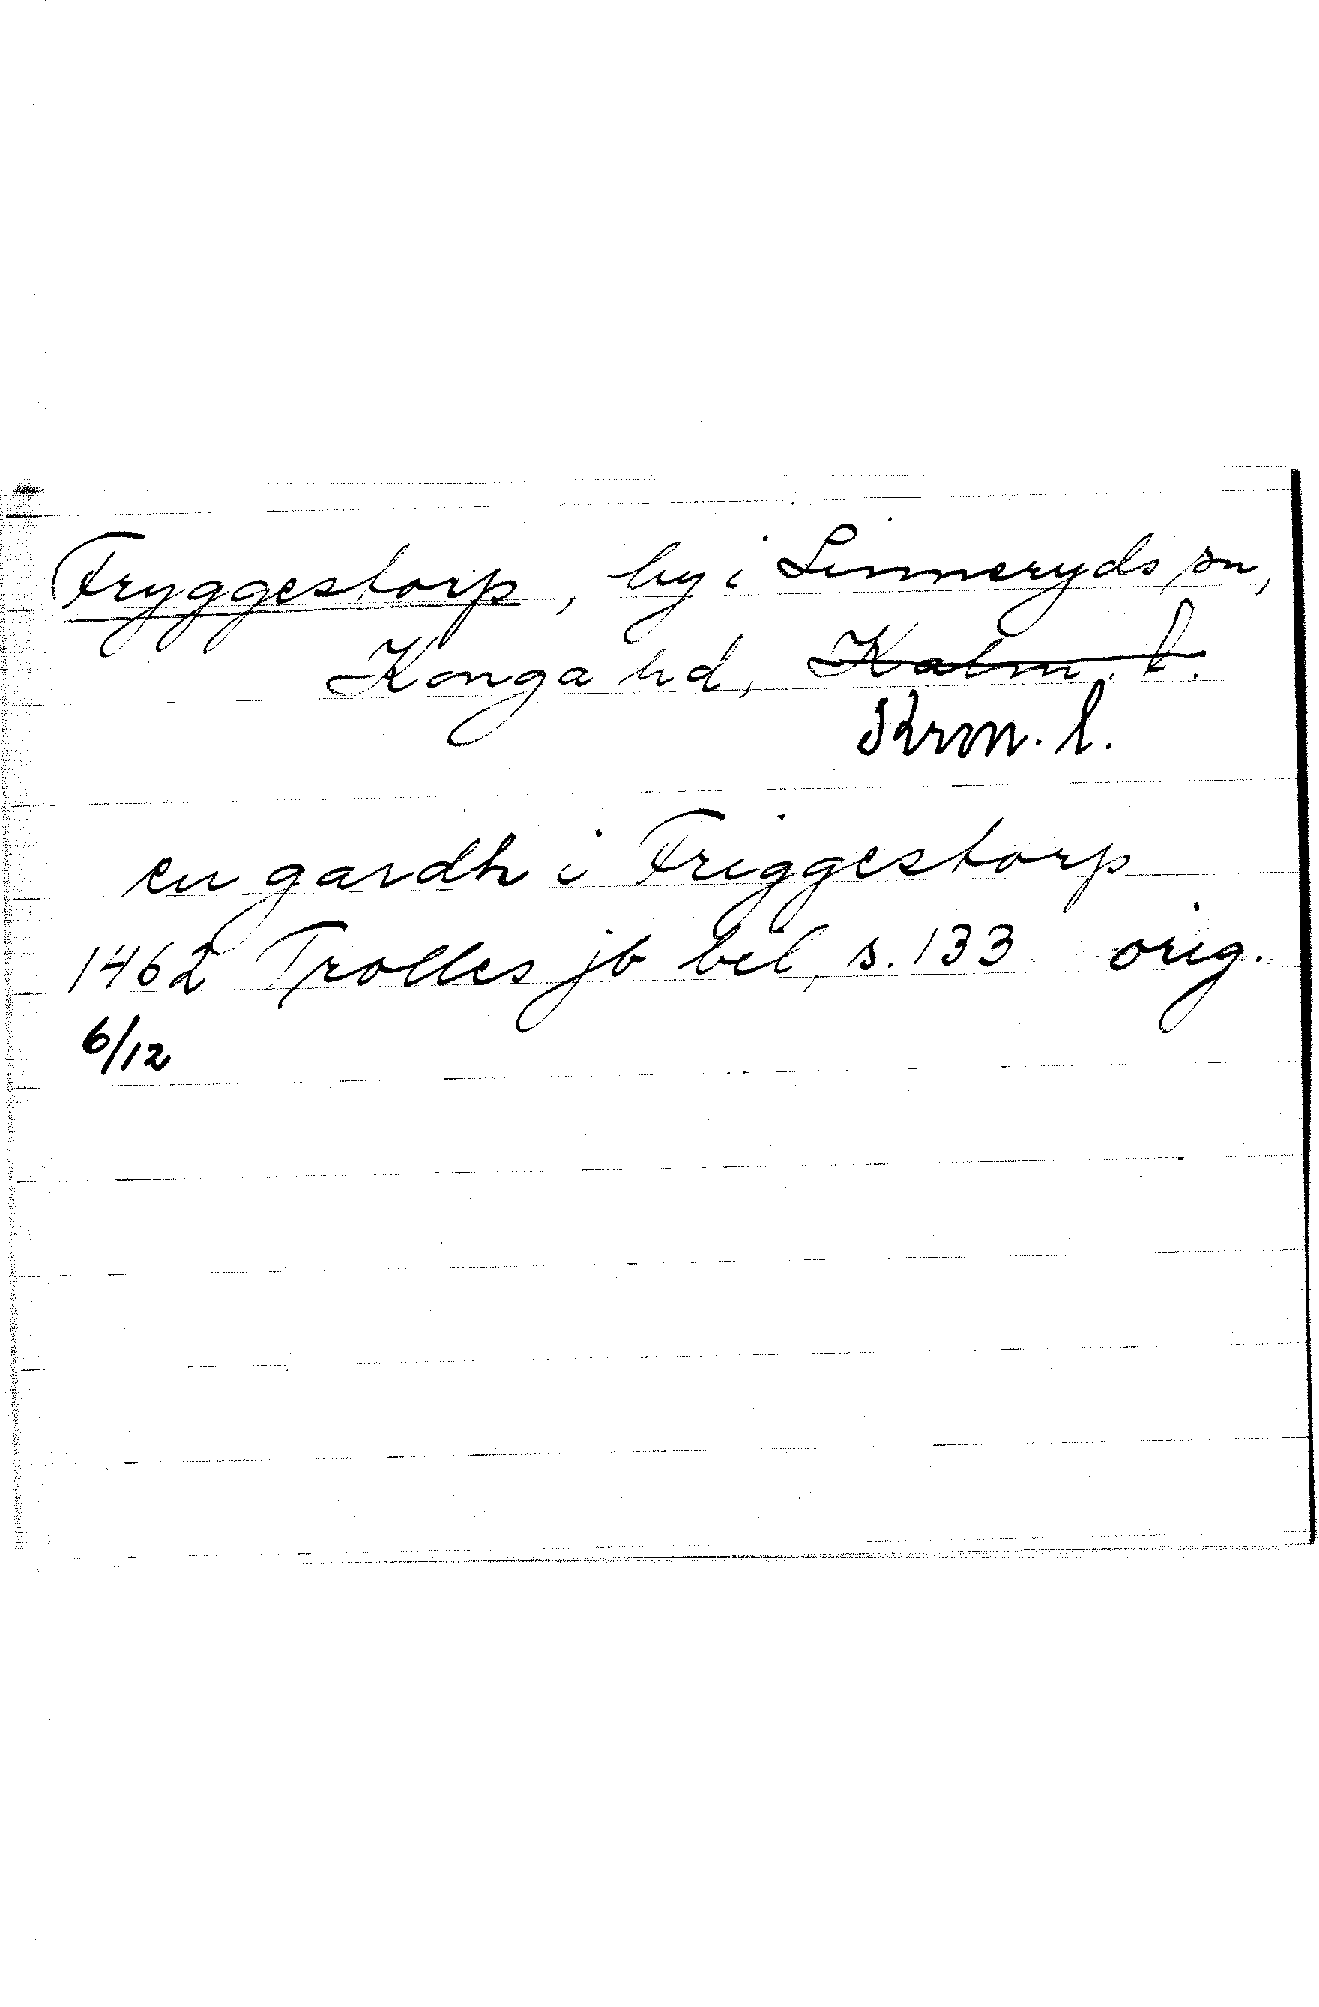 Fryggestorp, by i Linneryds sn,
Konga hd, Kalm. l.
Kron. l.
en gardh i Friggestorp
1462 Trolles jb bil, s. 133 orig.
6/12